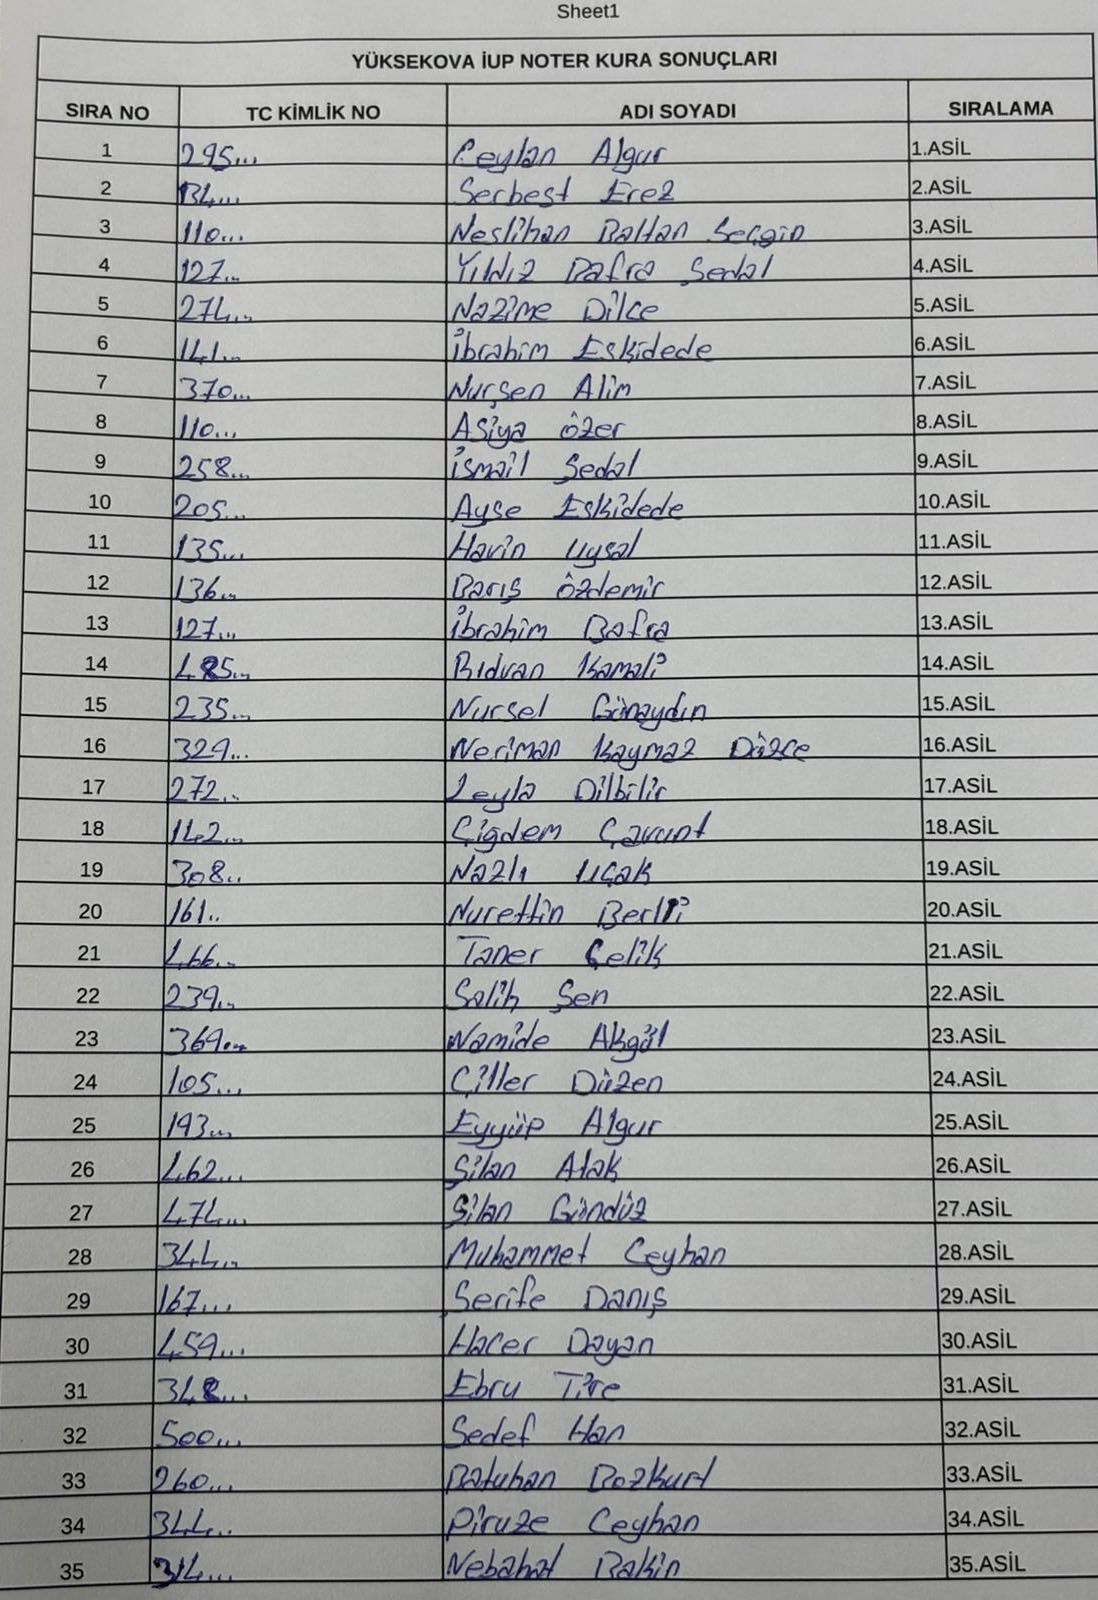 Sheet1
YÜKSEKOVA İUP NOTER KURA SONUÇLARI
SIRA NO TC KİMLİK NO ADI SOYADI SIRALAMA
1 295... Ceylan Algur 1.ASİL
2 134... Serbest Erez 2.ASİL
3 110... Neslihan Baltan Seçgin 3.ASİL
4 127... Yıldız Bafra Sedal 4.ASİL
5 274... Nazime Dilce 5.ASİL
6 141... İbrahim Eskidede 6.ASİL
7 370... Nurşen Alim 7.ASİL
8 110... Asiya Özer 8.ASİL
9 258... İsmail Sedal 9.ASİL
10 205... Ayşe Eskidede 10.ASİL
11 135... Havin Uysal 11.ASİL
12 136... Barış Özdemir 12.ASİL
13 127... İbrahim Bafra 13.ASİL
14 485... Rıdvan Kamali 14.ASİL
15 235... Nursel Günaydın 15.ASİL
16 329... Neriman Kaymaz Düzce 16.ASİL
17 272... Leyla Dilbilir 17.ASİL
18 142... Çiğdem Çavunt 18.ASİL
19 308.. Nazlı Uçak 19.ASİL
20 161.. Nurettin Berlli 20.ASİL
21 466... Taner Çelik 21.ASİL
22 239... Salih Şen 22.ASİL
23 369... Namide Akgül 23.ASİL
24 105... Çiller Düzen 24.ASİL
25 193... Eyyüp Algur 25.ASİL
26 462... Şilan Atak 26.ASİL
27 474... Şilan Gündüz 27.ASİL
28 344... Muhammet Ceyhan 28.ASİL
29 167... Şerife Danış 29.ASİL
30 459... Hacer Dayan 30.ASİL
31 348... Ebru Tire 31.ASİL
32 500... Sedef Han 32.ASİL
33 260... Batuhan Bozkurt 33.ASİL
34 344.. Piruze Ceyhan 34.ASİL
35 314... Nebahat Bakin 35.ASİL